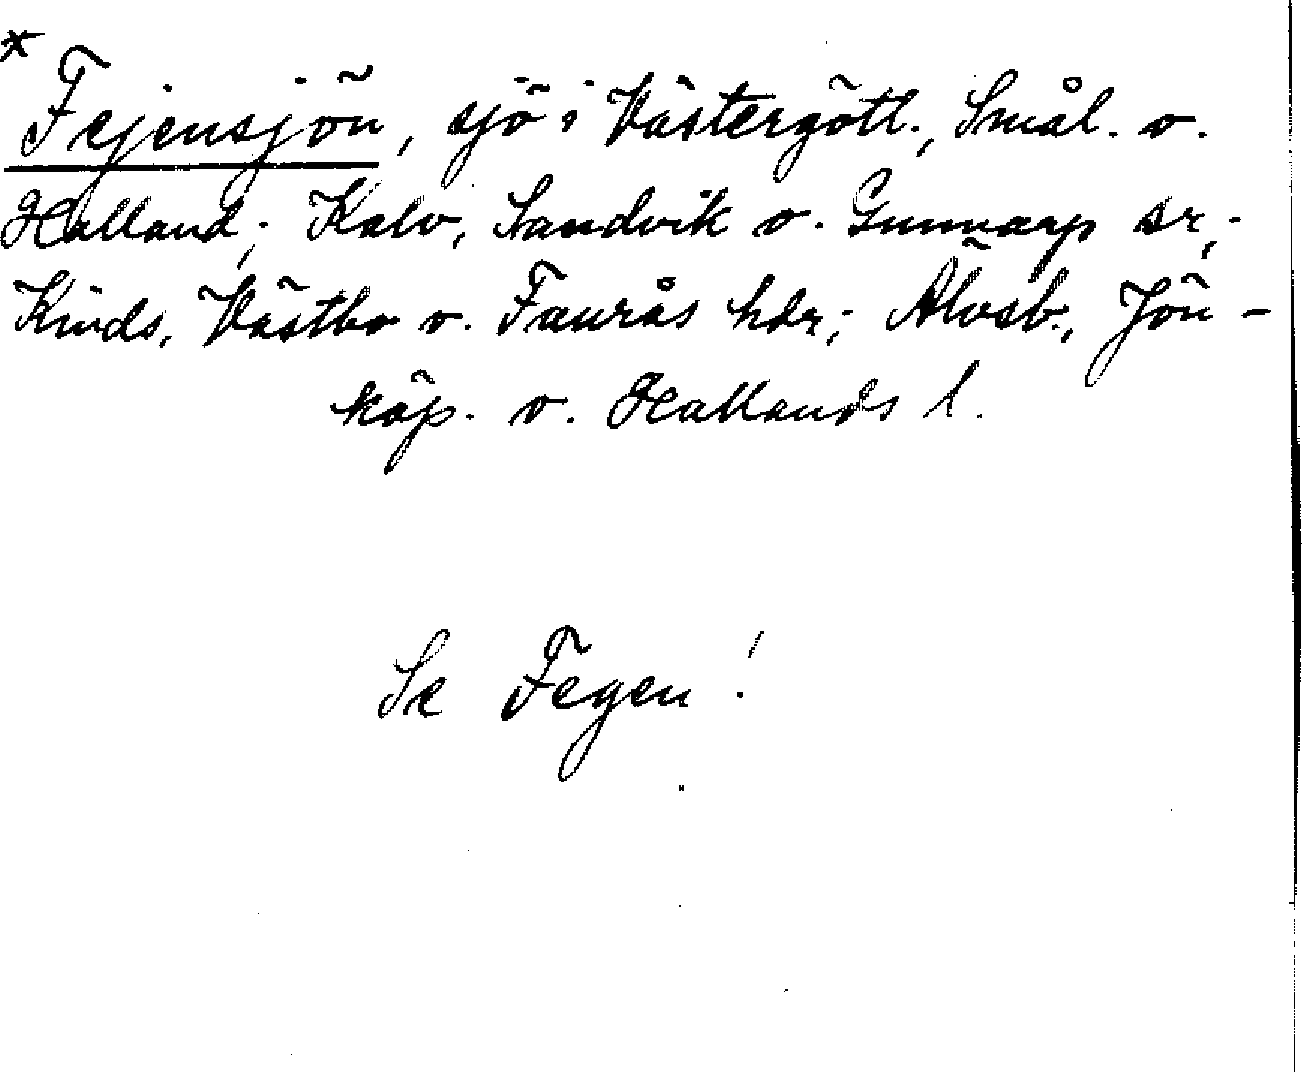 * Fejensjön, sjö i Västergötl., Smål. o.
Halland; Kalv, Sandvik o. Gunnarp sr;
Kinds, Västbo o. Faurås hdr; Älvsb., Jön-
köp. o. Hallands l.
Se Fegen!